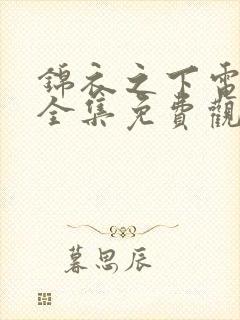 錦衣之下電
全集免費觀
暮思辰